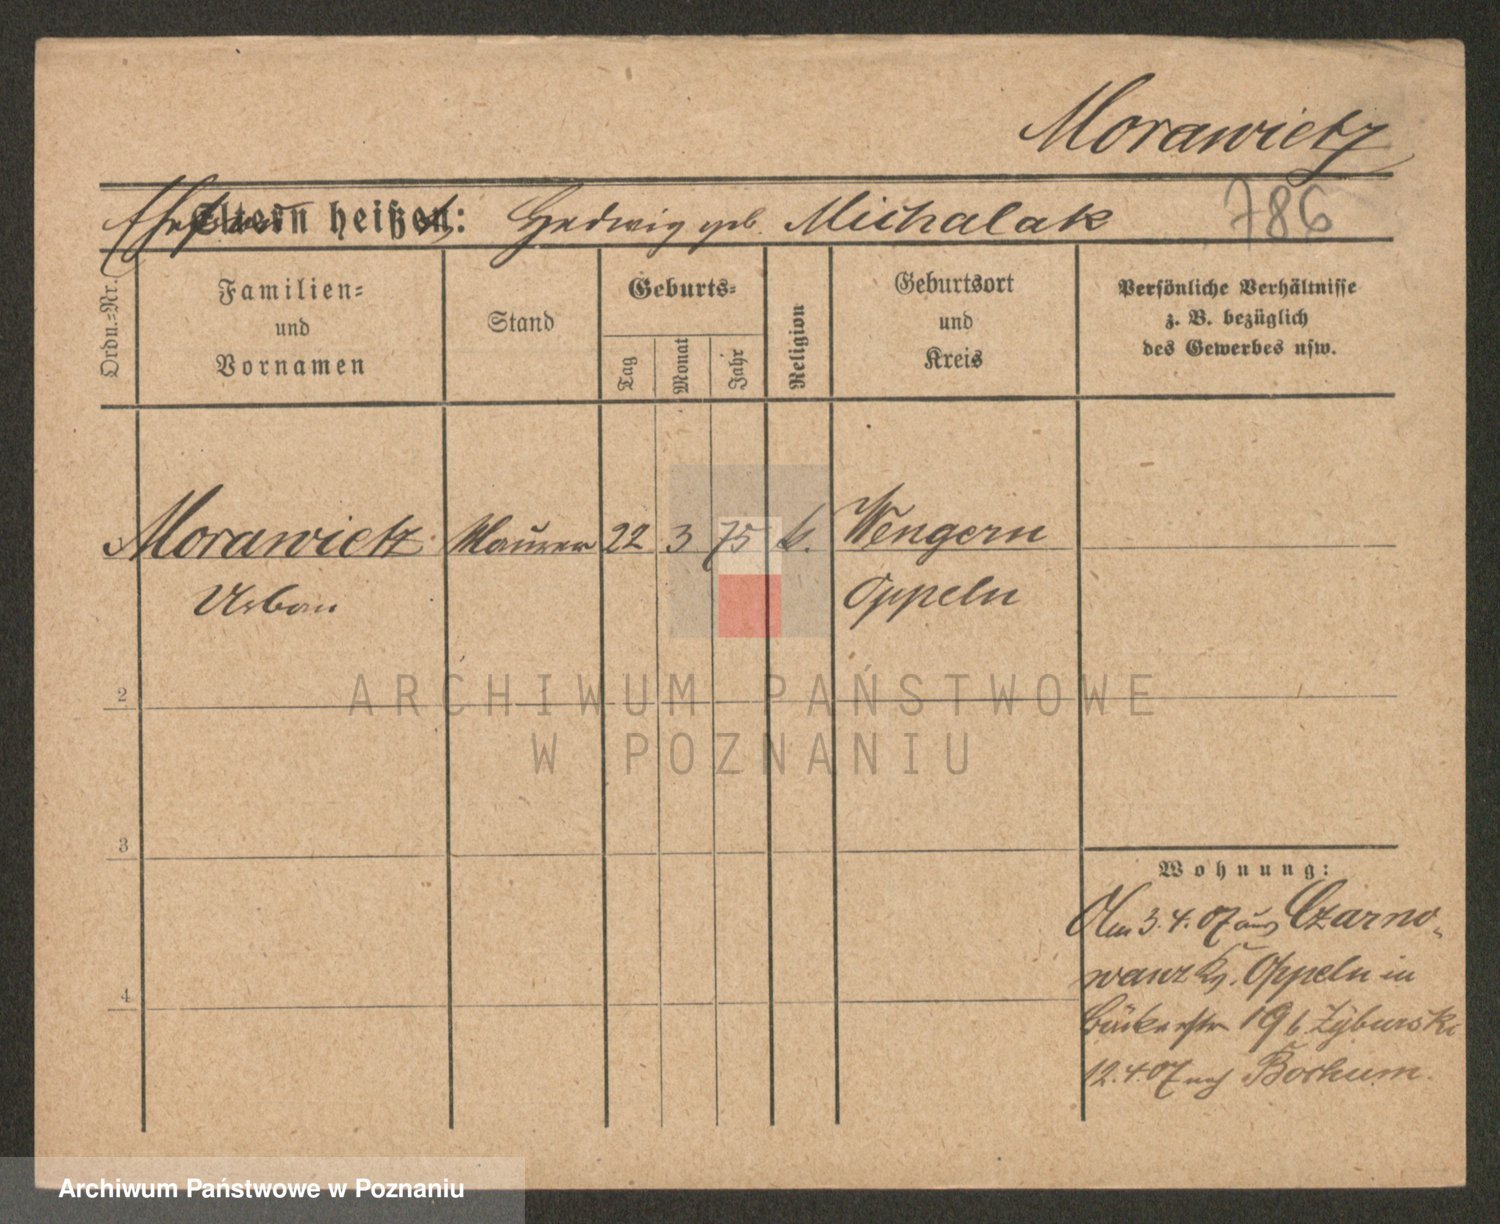 Morawietz
Ehefrau Eltern heißen: Hedwig geb. Michalak
786
Ordn.=Nr.
Familien=
und
Vornamen
Stand
Geburts=
Tag
Monat
Jahr
Religion
Geburtsort
und
Kreis
Persönliche Verhältnisse
z. B. bezüglich
des Gewerbes usw.
Morawietz Maurer 22 3 75 k. Wengern
Urban Oppeln
ARCHIWUM PAŃSTWOWE
W POZNANIU
2
3
4
Wohnung:
Am 3.4.07 aus Czarno-
wanz Kr. Oppeln in
Bäckerstr 19 b. Zyburski
12.4.07 nach Bochum.
Archiwum Państwowe w Poznaniu